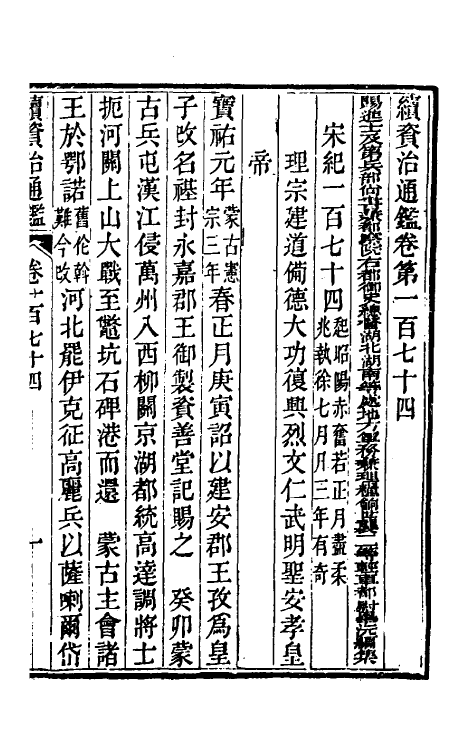 續資治通鑑卷第一百七十四
賜進士及第兵部尙書兼都察院右都御史總督湖北湖南等處地方軍務兼理糧餉世襲二等輕車都尉畢沅編集
宋紀一百七十四起昭陽赤奮若正月盡柔
兆執徐七月凡三年有奇
理宗建道備德大功復興烈文仁武明聖安孝皇
帝
寶祐元年蒙古憲宗三年春正月庚寅詔以建安郡王孜爲皇
子改名禥封永嘉郡王御製資善堂記賜之 癸卯蒙
古兵屯漢江侵萬州入西柳關京湖都統高達調將士
扼河關上山大戰至鼈坑石碑港而還 蒙古主會諸
王於鄂諾舊伦斡難今改河北罷伊克征高麗兵以薩喇爾岱
續資治通鑑 卷一百七十四 一